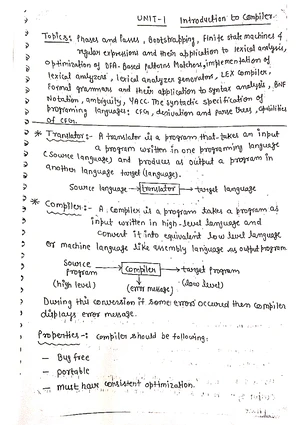 UNIT-1 Introduction to Compiler
Topics:- Phases and Passes, Bootstrapping, Finite state machines &
regular expressions and their application to lexical analysis,
optimization of DFA-Based patterns Matchers, implementation of
lexical analyzers, lexical analyzer generators, LEX compiler,
Formal grammars and their application to syntax analysis, BNF
Notation, ambiguity, YACC. The syntactic specification of
programing languages: CFG, derivation and parse trees, capabilities
of CFG.
* Translator:- A translator is a program that takes an input
a program written in one programming language
(Source language) and produces as output a program in
another language target (language).
Source language → translator → target language
* Compiler:- A compiler is a program takes a program as
input written in high-level language and
convert it into equivalent low level language
or machine language like assembly language as output program
Source program (high level) → Compiler → target program (low level)
(error message)
During this conversion if some errors occured then compiler
displays error message.
Properties-: compiler should be following:
— Bug free
— portable
— must have consistent optimization.